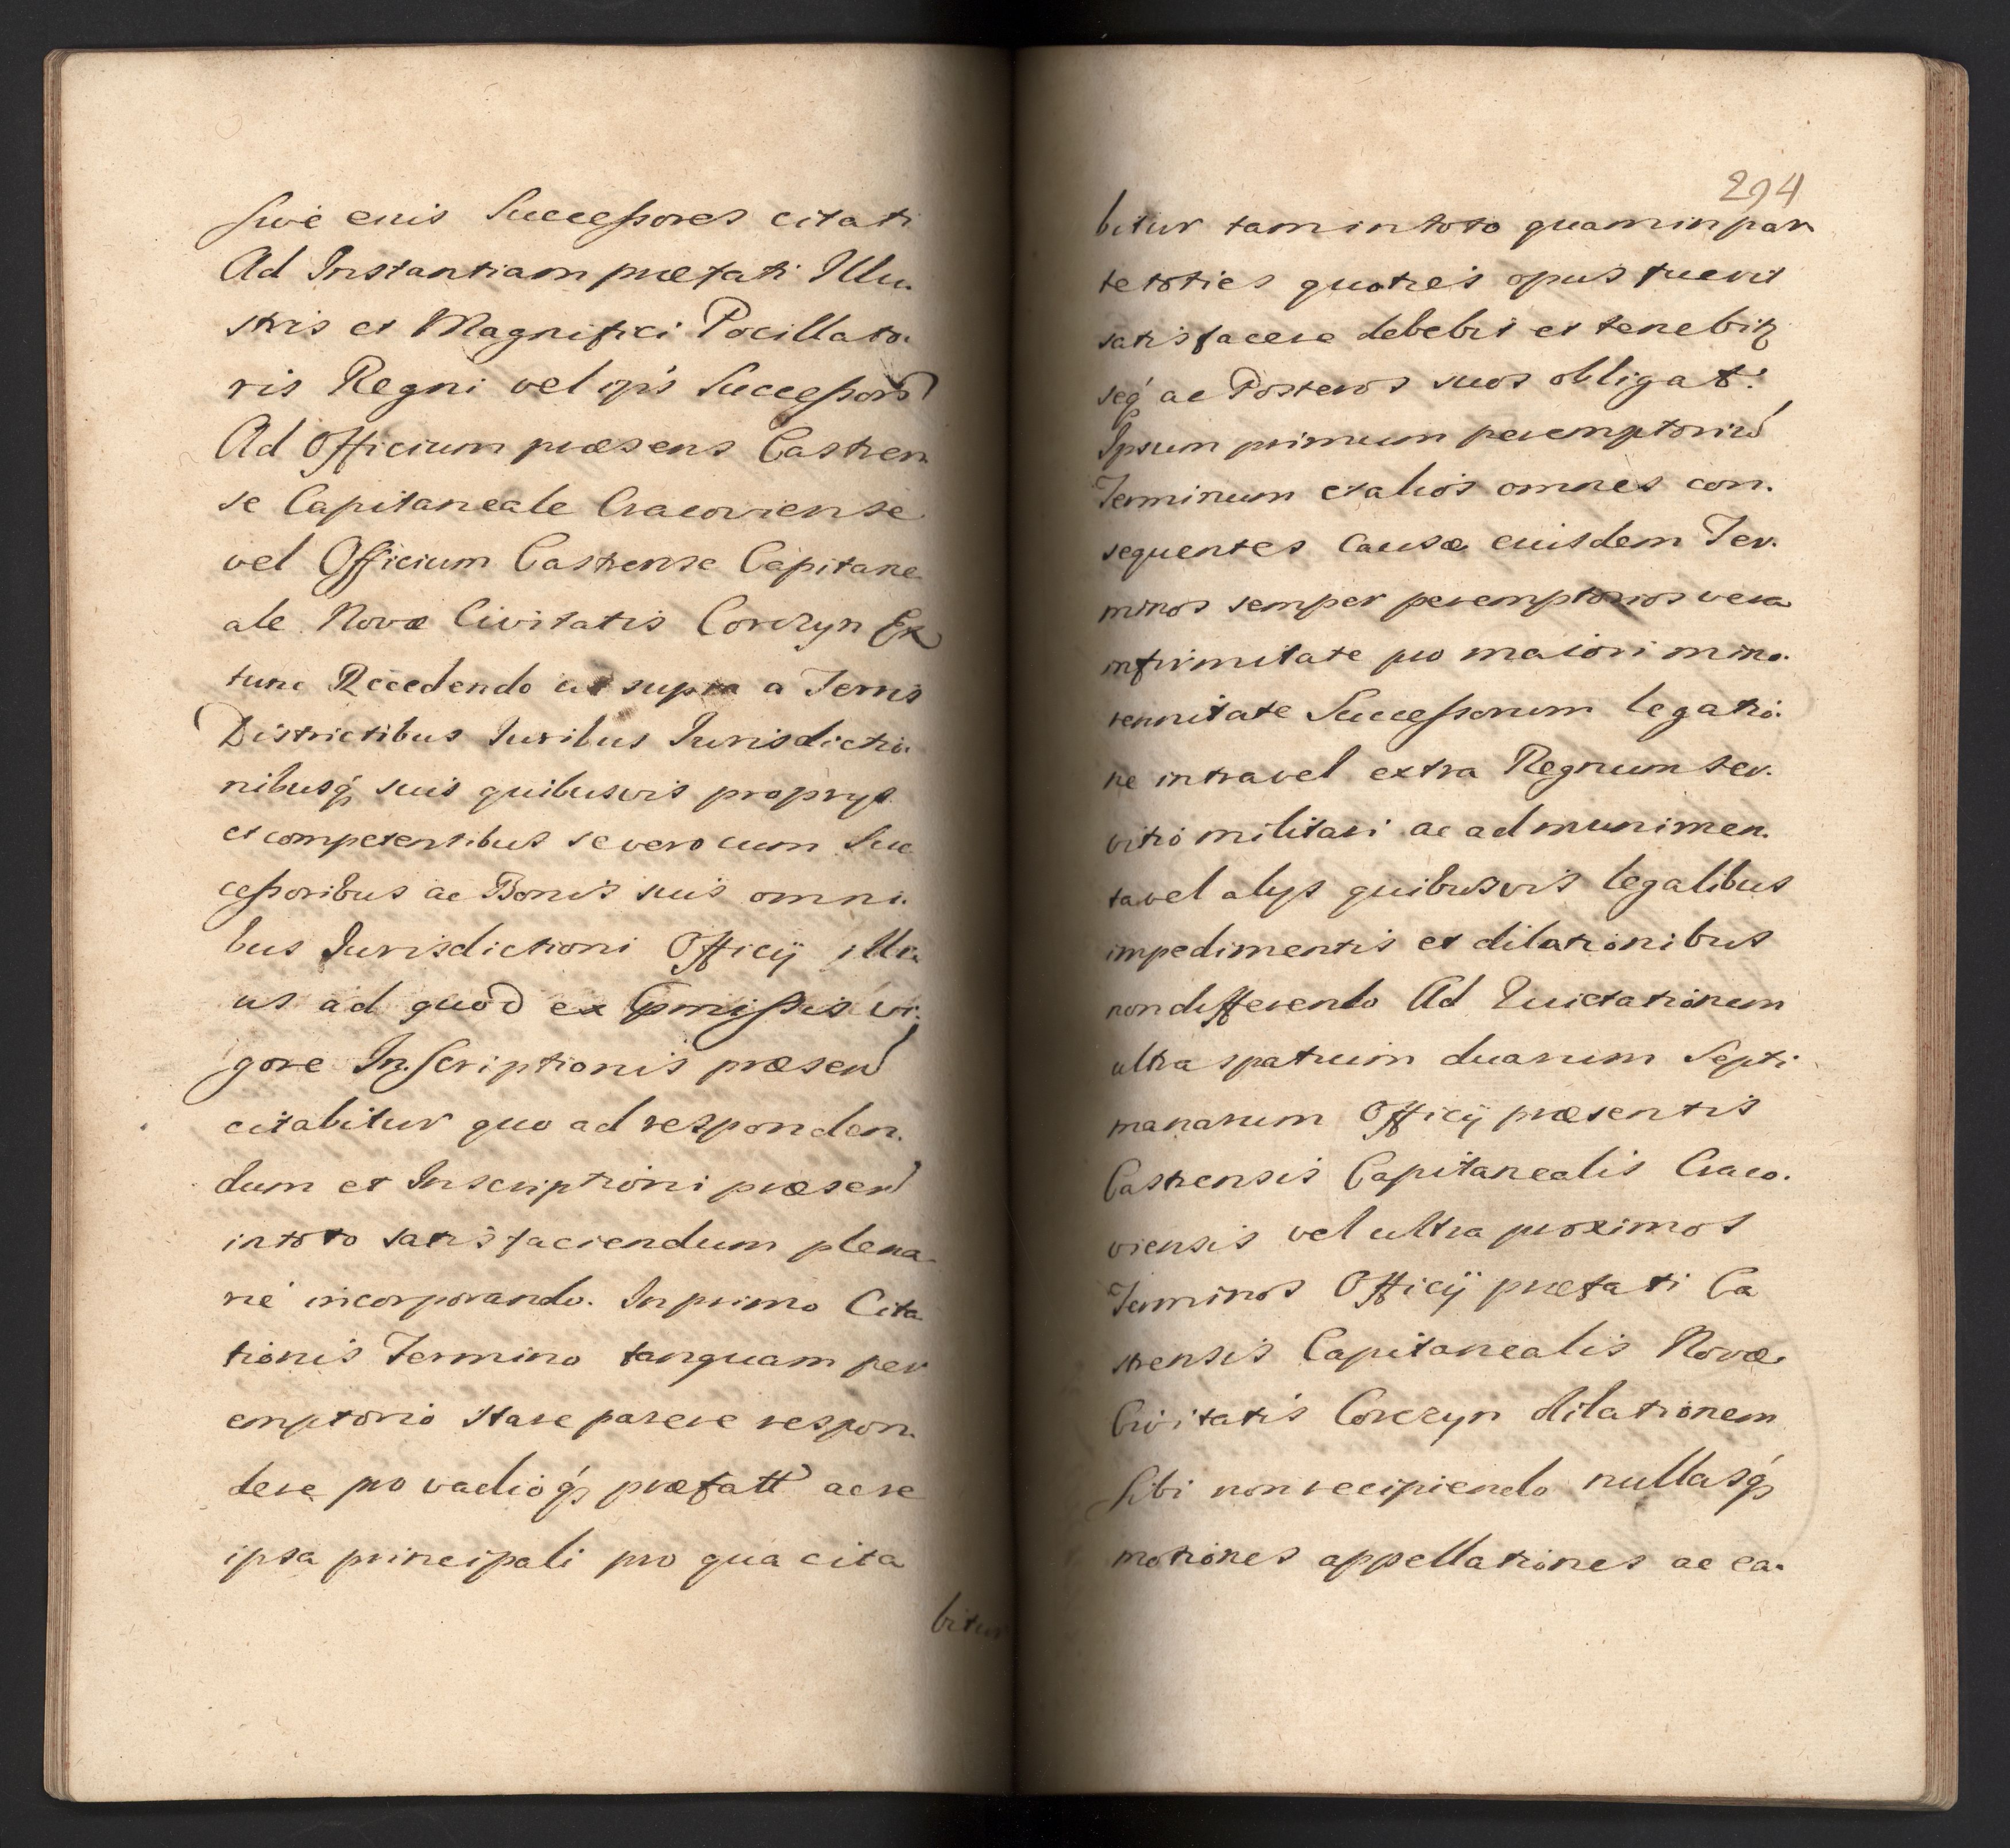 sive eius Successores citati
Ad Instantiam præfati Illu-
stris et Magnifici Pocillato-
ris Regni vel ips Successorũ
Ad Officium præsens Castren
se Capitaneale Cracoviense
vel Officium Castrense Capitane
ale Novæ Civitatis Corczyn Ex
tunc Recedendo ut supra a Terris
Districtibus Iuribus Iurisdictio
nibusq́ suis quibusvis proprys
et competentibus se vero cum Suc
cessoribus ac Bonis suis omni-
bus Iurisdictioni Officÿ illi-
us ad quod ex pmissis vi-
gore Inscriptionis præsen
citabitur quo ad responden-
dum et Inscriptioni præsen
in toto satisfaciendum plena
rié incorporando. In primo Cita
tionis Termino tanquam per
emptorio stare parere respon-
dere pro vadioq́ præfatt ac re
ipsa principali pro qua cita
bitur
294
bitur tam in toto quam in par
te toties quoties opus fuerit
satisfacere debebit et tenebitꝫ
seq́ ac Posteros suos obligat.
Ipsum primum peremptoriũ
Terminum et alios omnes con-
sequentes causæ eiusdem Ter-
minos semper peremptorios vera
infirmitate pro maiori mino-
rennitate Successorum legatio-
ne intra vel extra Regnum ser-
vitio militari ac ad munimen-
ta vel alys quibusvis legalibus
impedimentis et dilationibus
non differendo Ad Quietationem
ultra spatium duarum Septi
manarum Officÿ præsentis
Castrensis Capitanealis Craco-
viensis vel ultra proximos
Terminos Officÿ præfati Ca
strensis Capitanealis Novæ
Civitatis Corczyn dilationem
sibi non recipiendo nullasq́
motiones appellationes ac ea-